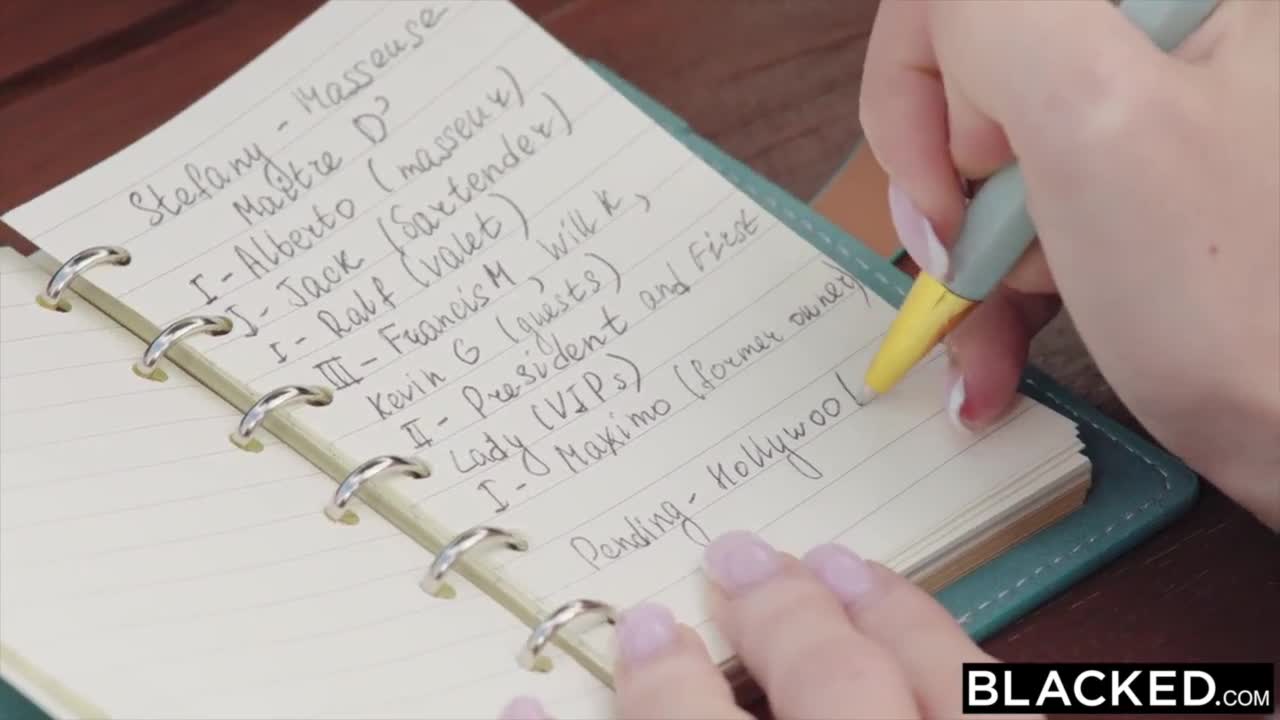 Stefany - Masseuse
Maitre D'
I - Alberto (masseur)
I - Jack (bartender)
I - Ralf (valet)
III - Francis M, Will K,
Kevin G (guests)
II - President and First
Lady (VIPs)
I - Maximo (former owner)
Pending - Hollywoo
BLACKED.COM